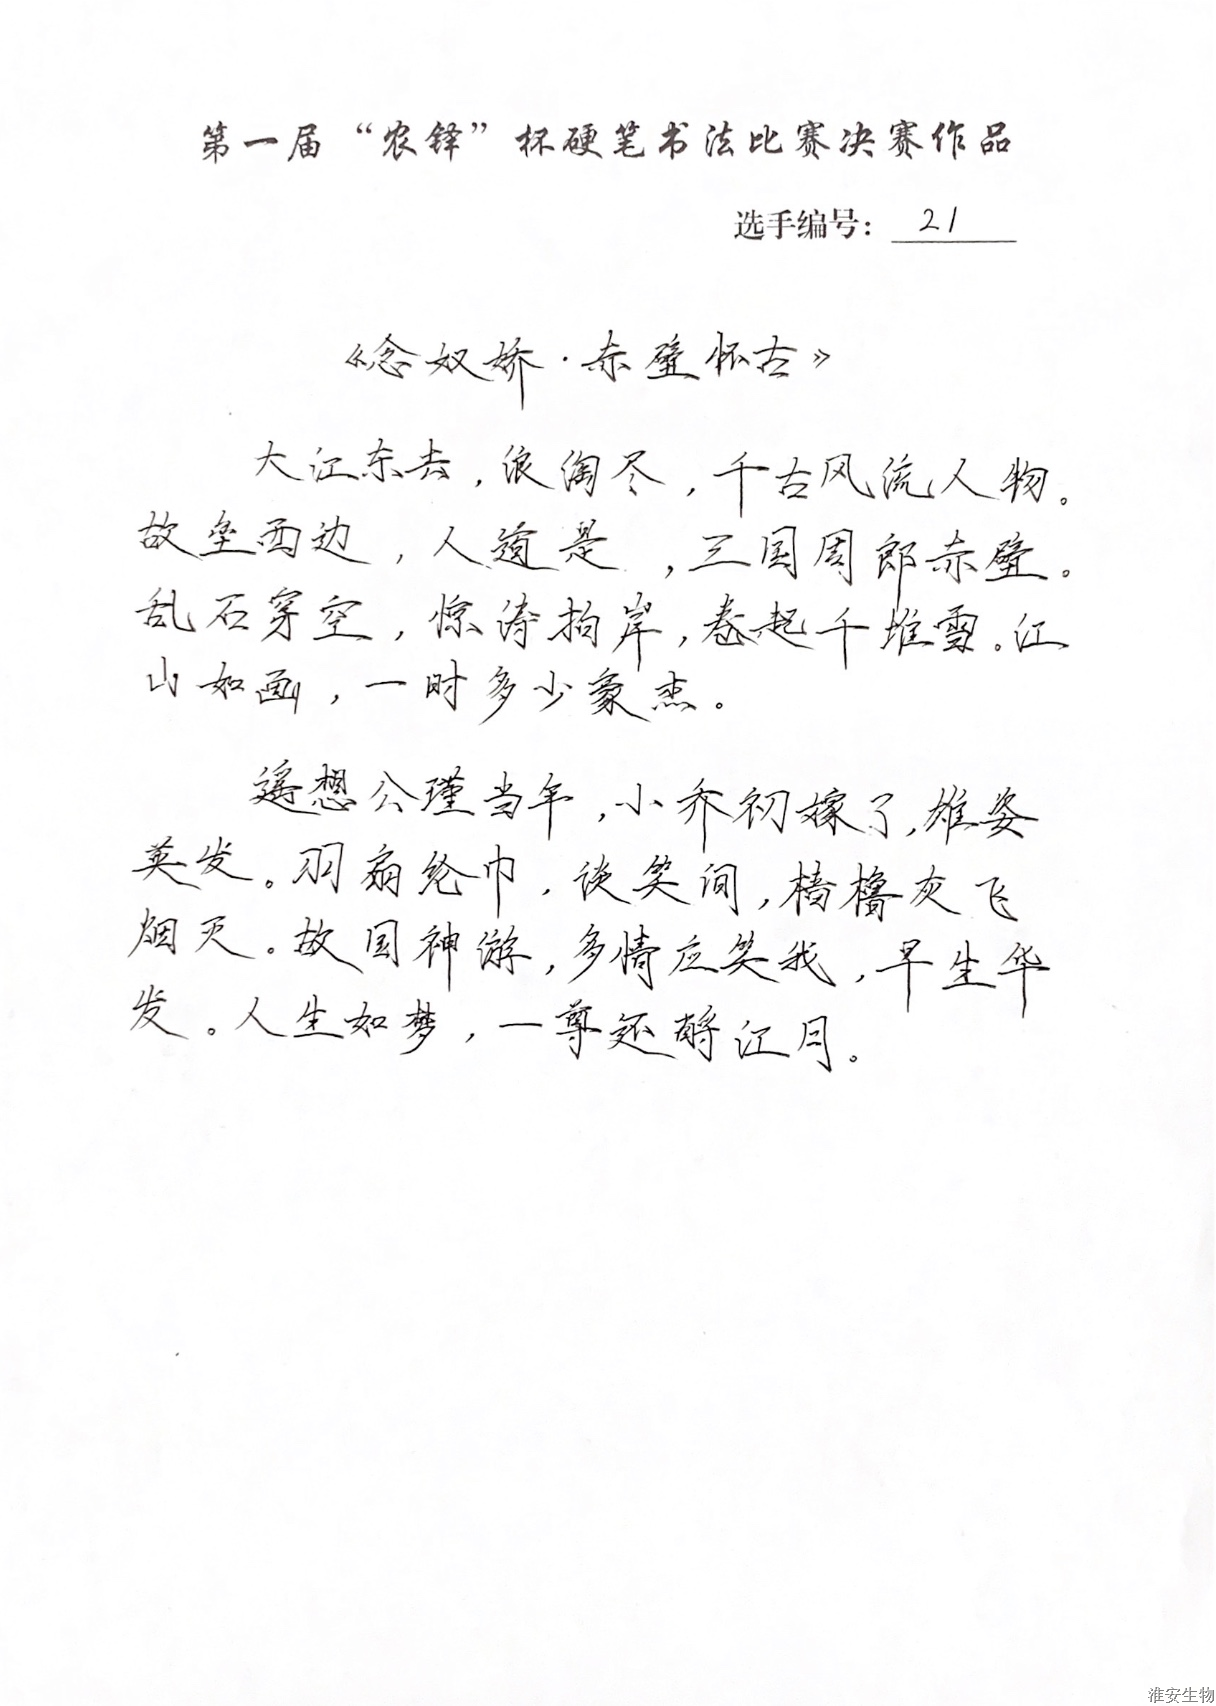 第一届“农铎”杯硬笔书法比赛决赛作品
选手编号：21
《念奴娇·赤壁怀古》
大江东去，浪淘尽，千古风流人物。
故垒西边，人道是，三国周郎赤壁。
乱石穿空，惊涛拍岸，卷起千堆雪。江
山如画，一时多少豪杰。
遥想公瑾当年，小乔初嫁了，雄姿
英发。羽扇纶巾，谈笑间，樯橹灰飞
烟灭。故国神游，多情应笑我，早生华
发。人生如梦，一尊还酹江月。
淮安生物